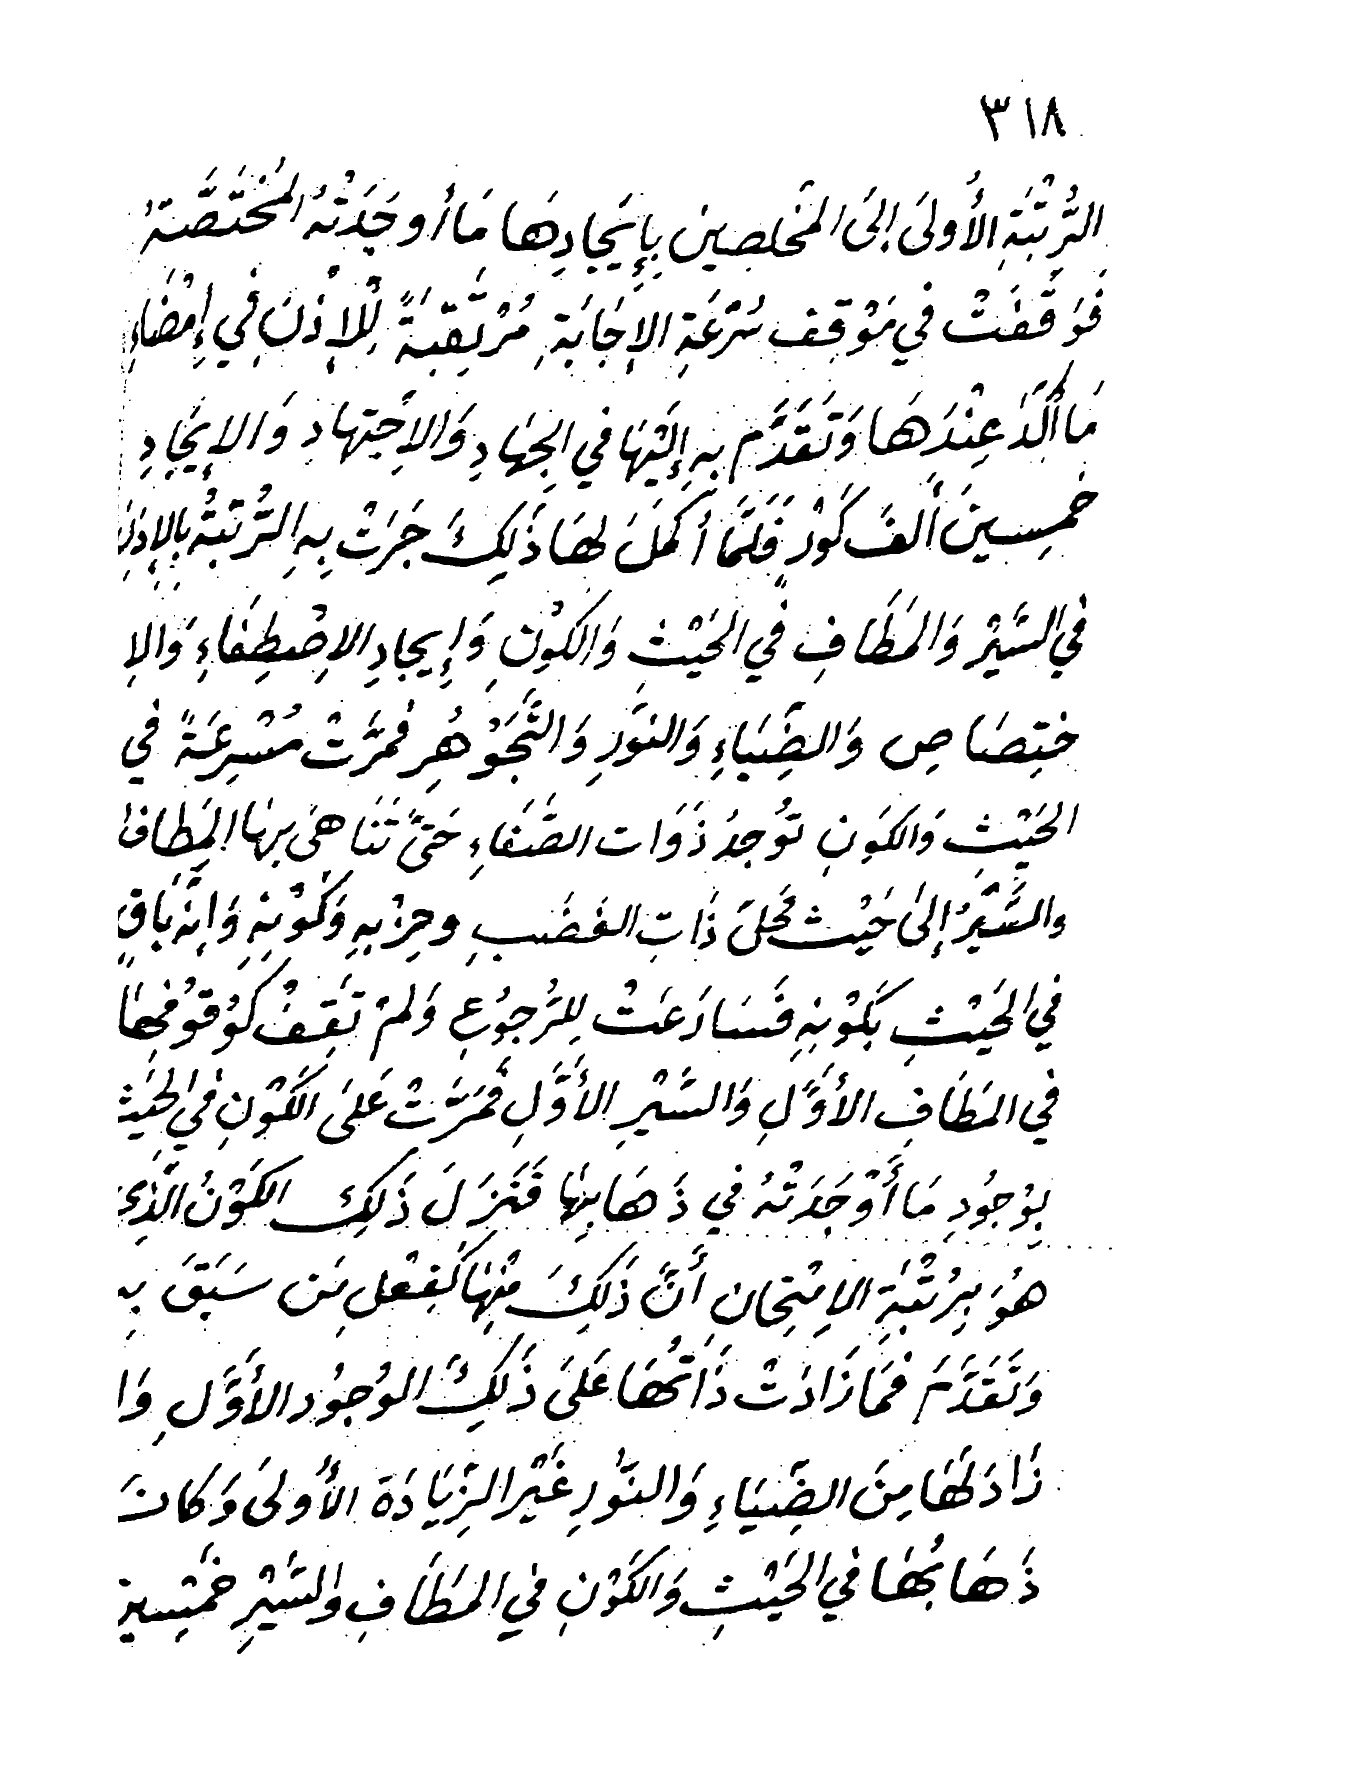 ٣١٨
الرُّتْبَةِ الأُولَى إلَى المُخْلِصِين بِإِيَجادِهَا مَا أَوجَدَتْهُ المُخْتَصَّةُ
فَوَقَّفَتْ في مَوْقِفِ سُرْعَةِ الإِجَابَةِ مُرْتَقِبَةً لِلْإِذْنِ فِي إِمْضَاءِ
مَا أَلَذَّ عِنْدَهَا وَتَقَدَّم بِهِ إِلَيْهَا في الجِهَادِ وَالاِجْتِهَادِ وَالإِيَجادِ
خمِسِينَ أَلفَ كَوْرٍ فَلَمَّا أكمَلَ لهَا ذَلِكَ جَرَتْ بِهِ الرُّتْبَةُ بِالإِذْنِ
في السَّيْرِ وَالمَطَافِ في الحَيْثِ وَالكَوْنِ وَإِيجادِ الاِصْطِفَاءِ وَالاِ
ختِصَاصِ وَالضِّيَاءِ وَالنّوَرِ وَالتَّجَوْهُرِ فَمَرَّتْ مُسْرِعَةً في
الحَيْثِ وَالكَوَنِ تُوجِدُ ذَوَات الصَّفَاءِ حَتَّى تَنَاهَى بِهَا المَطَافُ
والسَّيْرُ إلَى حَيْث مَحَلَّ ذَاتِ الغَضَبِ وحِزْبِهِ وَكَوْنِهِ وَإنّهُ بَاقٍ
في الحَيْثِ بَكَوْنِهِ فَسَارَعَتْ لِلرُّجوُعِ وَلَمْ تَقِفْ كَوُقوُفِهَا
في المَطَافِ الأَوَّلِ وَالسَّيْرِ الأَوَّلِ فَمَرَّتْ عَلىَ الكَوْنِ في الحَيْثِ
بِوُجُودِ مَا أَوْجَدَتْهُ في ذَهَابِهَا فَنَزَلَ ذَلِكَ الكَوْنُ الَّذِي
هوُ بِرُتْبَةِ الاِمْتِحَانِ أَنَّ ذَلِكَ مِنْهَا كَفِعْلِ مَن سَبَقَ بِهِ
وَتَقَدَّمَ فَمَا زَادَتْ ذَاتُهَا عَلَى ذَلِكَ الوُجوُد الأَوَّلِ وَا
زَادَ لَهَا مِنَ الضِّيَاءِ وَالنّوُرِ غَيْرَ الزِّيَادَة الأُولىَ وَكَانَ
ذَهَابُهَا في الحَيْثِ وَالكَوْنِ في المَطَافِ وَالسَّيْرِ خَمْسِين